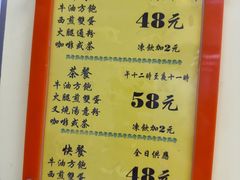 牛油方飽
西煎雙蛋
火腿通粉
咖啡或茶
48元
凍飲加2元
茶餐
午十二時至晨十一時
牛油方飽
火腿煎雙蛋
叉燒湯意粉
咖啡或茶
58元
凍飲加2元
快餐
全日供應
牛油方飽
西煎雙蛋
48元